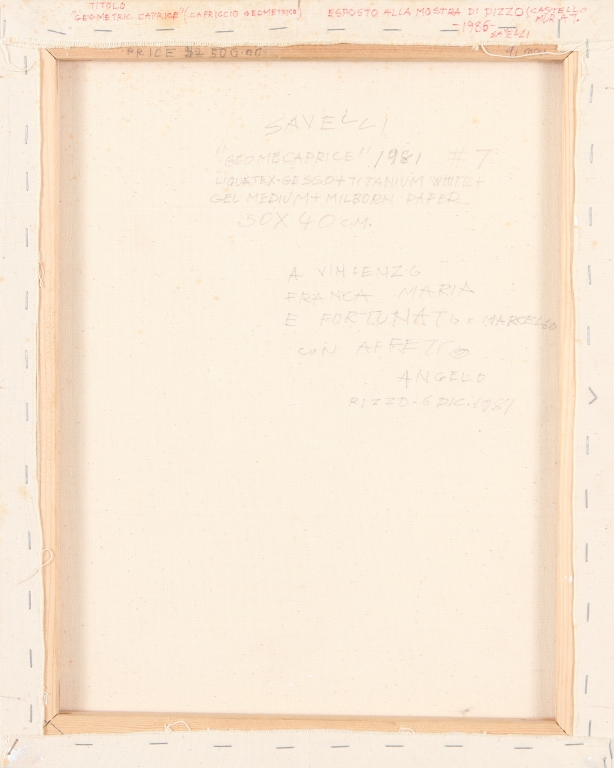 TITOLO
"GEOMETRIC CAPRICE" (CAPRICCIO GEOMETRICO)
ESPOSTO ALLA MOSTRA DI PIZZO (CASTELLO
MURAT.
-1986-
SAVELLI
PRICE $2500.00
SAVELLI
"GEOMECAPRICE" 1981 #7
LIQUITEX-GESSO+TITANIUM WHITE+
GEL MEDIUM+MILBORN PAPER
50X40 CM.
A VINCENZO
FRANCA MARIA
E FORTUNATO E MARCELLO
CON AFFETTO
ANGELO
PIZZO-6 DIC. 1987